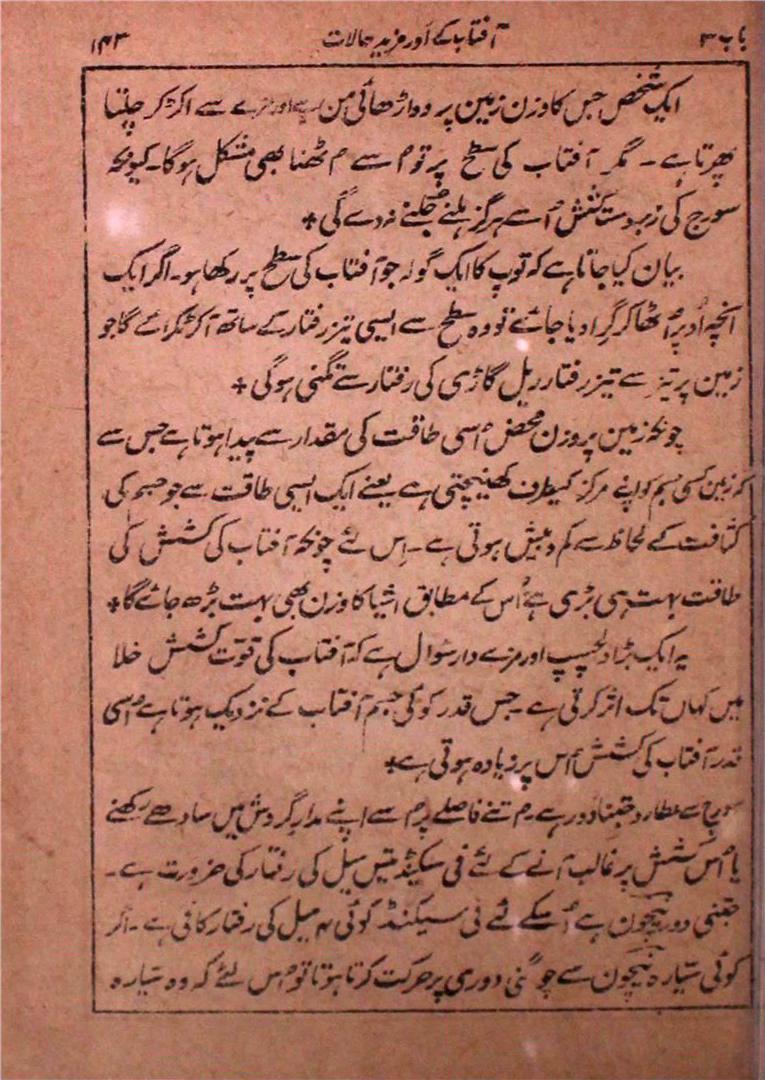 باب ۳ آفتاب کے اور مزید حالات ۱۴۳
ایک شخص جس کا وزن زمین پر وہ اڑھائی من ہے اور مزے سے اکڑ کر چلتا
پھرتا ہے ۔ مگر آفتاب کی سطح پر تو اُسے اُٹھنا بھی مشکل ہوگا ۔ کیونکہ
سورج کی زبردست کشش اُسے ہرگز ہلنے جلنے نہ دے گی +
بیان کیا جاتا ہے کہ توپ کا ایک گولہ جو آفتاب کی سطح پر رکھا ہو ۔ اگر ایک
انچہ اُوپر اُٹھا کر گِرا دیا جائے تو وہ سطح سے ایسی تیز رفتار کے ساتھ آ کر ٹکرائے گا جو
زمین پر تیز سے تیز رفتار ریل گاڑی کی رفتار سے تگنی ہوگی +
چونکہ زمین پر وزن محض اُسی طاقت کی مقدار سے پیدا ہوتا ہے جس سے
کہ زمین کسی جسم کو اپنے مرکز کیطرف کھینچتی ہے یعنے ایک ایسی طاقت سے جو جسم کی
کثافت کے لحاظ سے کم و بیش ہوتی ہے ۔ اِس لئے چونکہ آفتاب کی کشش کی
طاقت بہت ہی بڑی ہے اُس کے مطابق اشیا کا وزن بھی بہت بڑھ جائے گا +
یہ ایک بڑا دلچسپ اور مزے دار سوال ہے کہ آفتاب کی قوّت کشش خلا
میں کہاں تک اثر کرتی ہے ۔ جس قدر کوئی جسم آفتاب کے نزدیک ہوتا ہے اُسی
قدر آفتاب کی کشش اُس پر زیادہ ہوتی ہے +
سورج سے عطارد جتنا دور ہے اُتنے فاصلے پر اُسے اپنے مدارِ گردش میں سادھے رکھنے
یا اُس کشش پر غالب آنے کے لئے فی سکینڈ تیس میل کی رفتار کی ضرورت ہے ۔
جتنی دور نیپچون ہے اُسکے لئے فی سیکنڈ کوئی ۳ میل کی رفتار کافی ہے ۔ اگر
کوئی سیّارہ نیپچون سے چوگنی دوری پر حرکت کرتا ہوتا تو اُس لئے کہ وہ سیّارہ